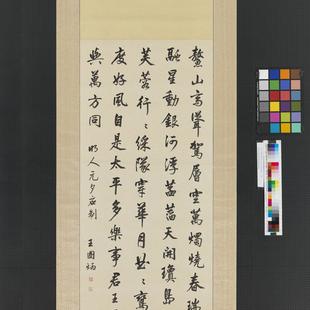 鰲山高聳駕層空萬燭燒春瑞
融星動銀河浮菡萏天開瓊島
芙蓉行〻綵隊穿華月曲〻鸞
度好風自是太平多樂事君王
與萬方同
明人元夕應制
王國炳